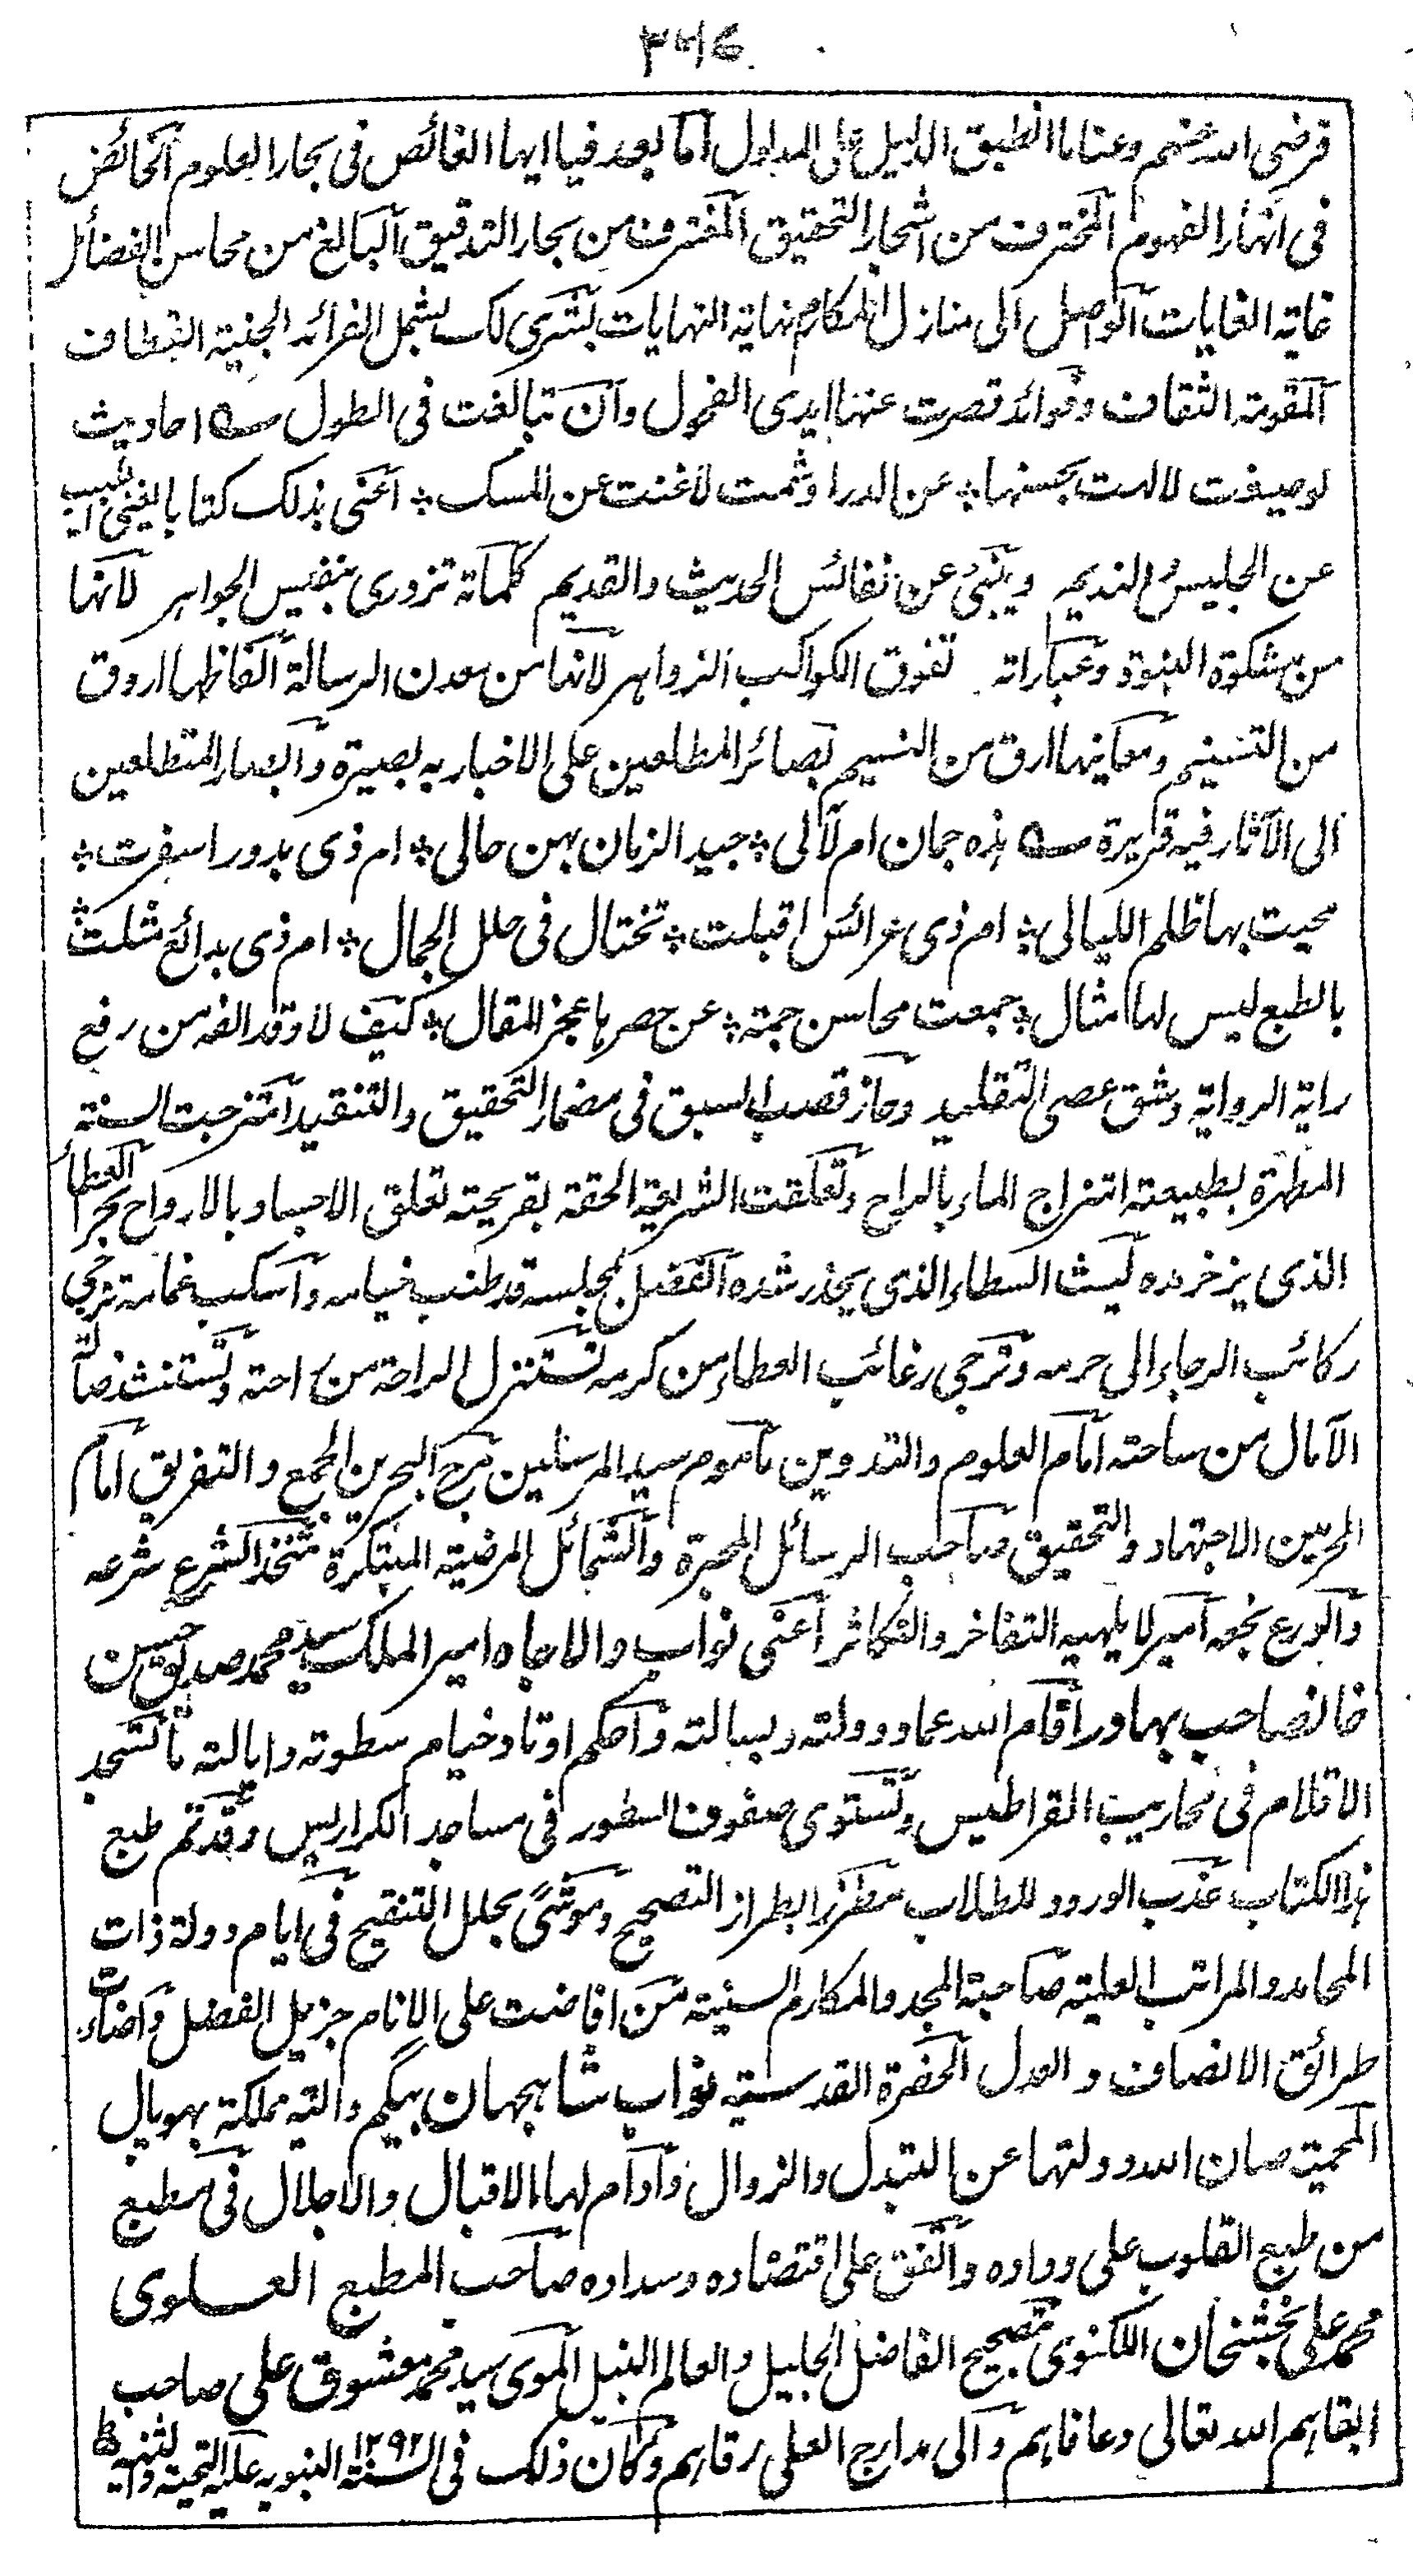 فرضى الله عنهم وعنا ما انطبق الدليل على المدلول اما بعد فيا ايها الغائص فى بحار العلوم الخائض
فى انهار الفهوم المخترف من اشجار التحقيق المغترف من بحار التدقيق البالغ من محاسن الفضائل
غاية الغايات الواصل الى منازل المكارم نهاية النهايات بشرى لك بشمل الفرائد الجنية القطاف
المقومة الثقاف وفوائد قصرت عنها ايدى الفحول وان تبالغت فى الطول احاديث
لو صيغت لالهت بحسنها ؞ عن الدر او شمت لاغنت عن المسك ؞ اعنى بذلك كتابا يغنى اللبيب
عن الجليس والنديم وينبئ عن نفائس الحديث والقديم كلماته تزورى بنفيس الجواهر لانها
من مشكوة النبوة وعباراته تفوق الكواكب الزواهر لانها من معدن الرسالة الفاظها اروق
من التسنيم ومعانيها ارق من النسيم بصائر المطلعين على الاخبار به بصيرة وابصار المتطلعين
الى الآثار فيه قريرة هذه جمان ام لآلى ؞ جيد الزمان بهن حالى ؞ ام ذى بدور اسفرت ؞
محيت بها ظلم الليالى ؞ ام ذى عرائس اقبلت ؞ تختال فى حلل الجمال ؞ ام ذى بدائع شكلت ؞
بالطبع ليس لها مثال ؞ جمعت محاسن جمة ؞ عن حصرها عجز المقال ؞ كيف لا وقد الفه من رفع
راية الرواية وشق عصى التقليد وحاز قصب السبق فى مضمار التحقيق والتنقيد امتزجت السنة
المطهرة بطبيعته امتزاج الماء بالراح وتعلقت الشريعة الحقة بقريحته تعلق الاجساد بالارواح بحر العطاء
الذى يزخر مده ليث السطاء الذى يحذر شده الفضل بمجلسه قد طنب خيامه واسكب غمامه تزجى
ركائب الرجاء الى حرمه وترجى رغائب العطاء من كرمه تستنزل الراحة من راحته وتستنشد ضالة
الآمال من ساحته امام العلوم والتدوين مأموم سيد المرسلين مرج البحرين الجمع والتفريق امام
الحرمين الاجتهاد والتحقيق صاحب الرسائل المحبرة والشمائل المرضية المبتكرة متخذ الشرع شرعه
والورع نجعه امير لا يلهيه التفاخر والتكاثر اعنى نواب والاجاه امير الملك سيد محمد صديق حسن
خانصاحب بهادر اقام الله عماد دولته وبسالته واحكم اوتاد خيام سطوته وايالته ما تسجد
الاقلام فى محاريب القراطيس وتستوى صفوف السطور فى مساجد الكراريس وقد تم طبع
هذا الكتاب عذب الورود للطلاب مطرزا بطراز التصحيح وموشى بحلل التنقيح فى ايام دولة ذات
المحامد والمراتب العلية صاحبة المجد والمكارم السنية من افاضت على الانام جزيل الفضل واضاءت
طرائق الانصاف والعدل الحضرة القدسية نواب شاهجهان بيگم والية مملكة بهوپال
المحمية صان الله دولتها عن التبدل والزوال وادام لها الاقبال والاجلال فى مطبع
من طبع القلوب على وداده واتفق على اقتصاده وسداده صاحب المطبع العلوى
محمد على بخشخان اللكنوى بتصحيح الفاضل الجليل والعالم النبيل المولوى سيد محمد معشوق على صاحب
ابقاهم الله تعالى وعافاهم والى مدارج العلى رقاهم وكان ذلك فى السنة ١٢٩٢ النبويه عليه التحية والثنية